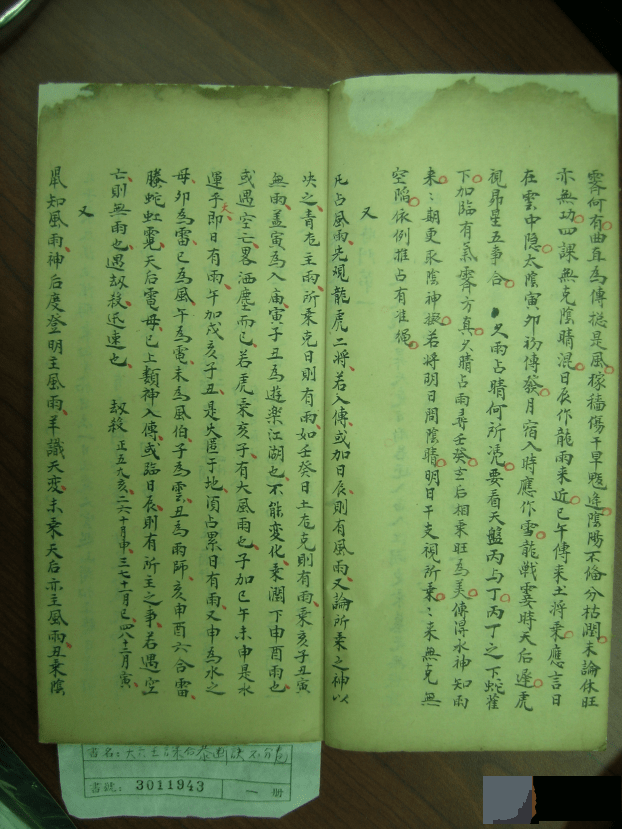 霽何有曲直為傳摠是風稼穡楊干旱魃逢陰陽不俻分枯潤末論休旺
亦無功四課無克陰晴混日辰作龍雨来近巳午傳来土將乗應言日
在雲中隐太陰寅夘初傳發月宿入時應作雪龍戦霎時天后逢虎
視昴星五事合 久雨占晴何所憑要看天盤丙与丁丙丁之下蛇雀
下加臨有氣霽方真久晴占雨尋壬癸玄后相乗旺為美傳得水神知雨
来來期更永陰神擬若將明日問陰晴明日干支視所乗乗来無克無
空陥依例推占有准繩
又
凡占風雨先視龍虎二將若入傳或加日辰則有風雨又論所乗之神以
决之青龙主雨所乗克日則有雨如壬癸日土龙克則有雨乗亥子丑寅
無雨盖寅為入庙寅子丑為遊楽江湖之不能変化乗潤下申酉雨也
或遇空亡畧洒塵而已若虎乗亥子有大風雨也子加巳午未申是水
運乎天即日有雨午加戌亥子丑是火匿于地湏占累日有雨又申為水之
母夘為雷巳為風午為電未為風伯子為雲丑為雨師亥申酉六合雷
騰蛇虹霓天后電母已上類神入傳或臨日辰則有所主之事若遇空
亡則無雨也遇刼殺迅速也 刼殺 正五九亥二六十月申三七十一月巳四八十二月寅
又
鼠知風雨神后度登明主風雨羊識天変未乗天后亦主風雨丑乗陰
書名：大六壬課
書號：3011943 一冊